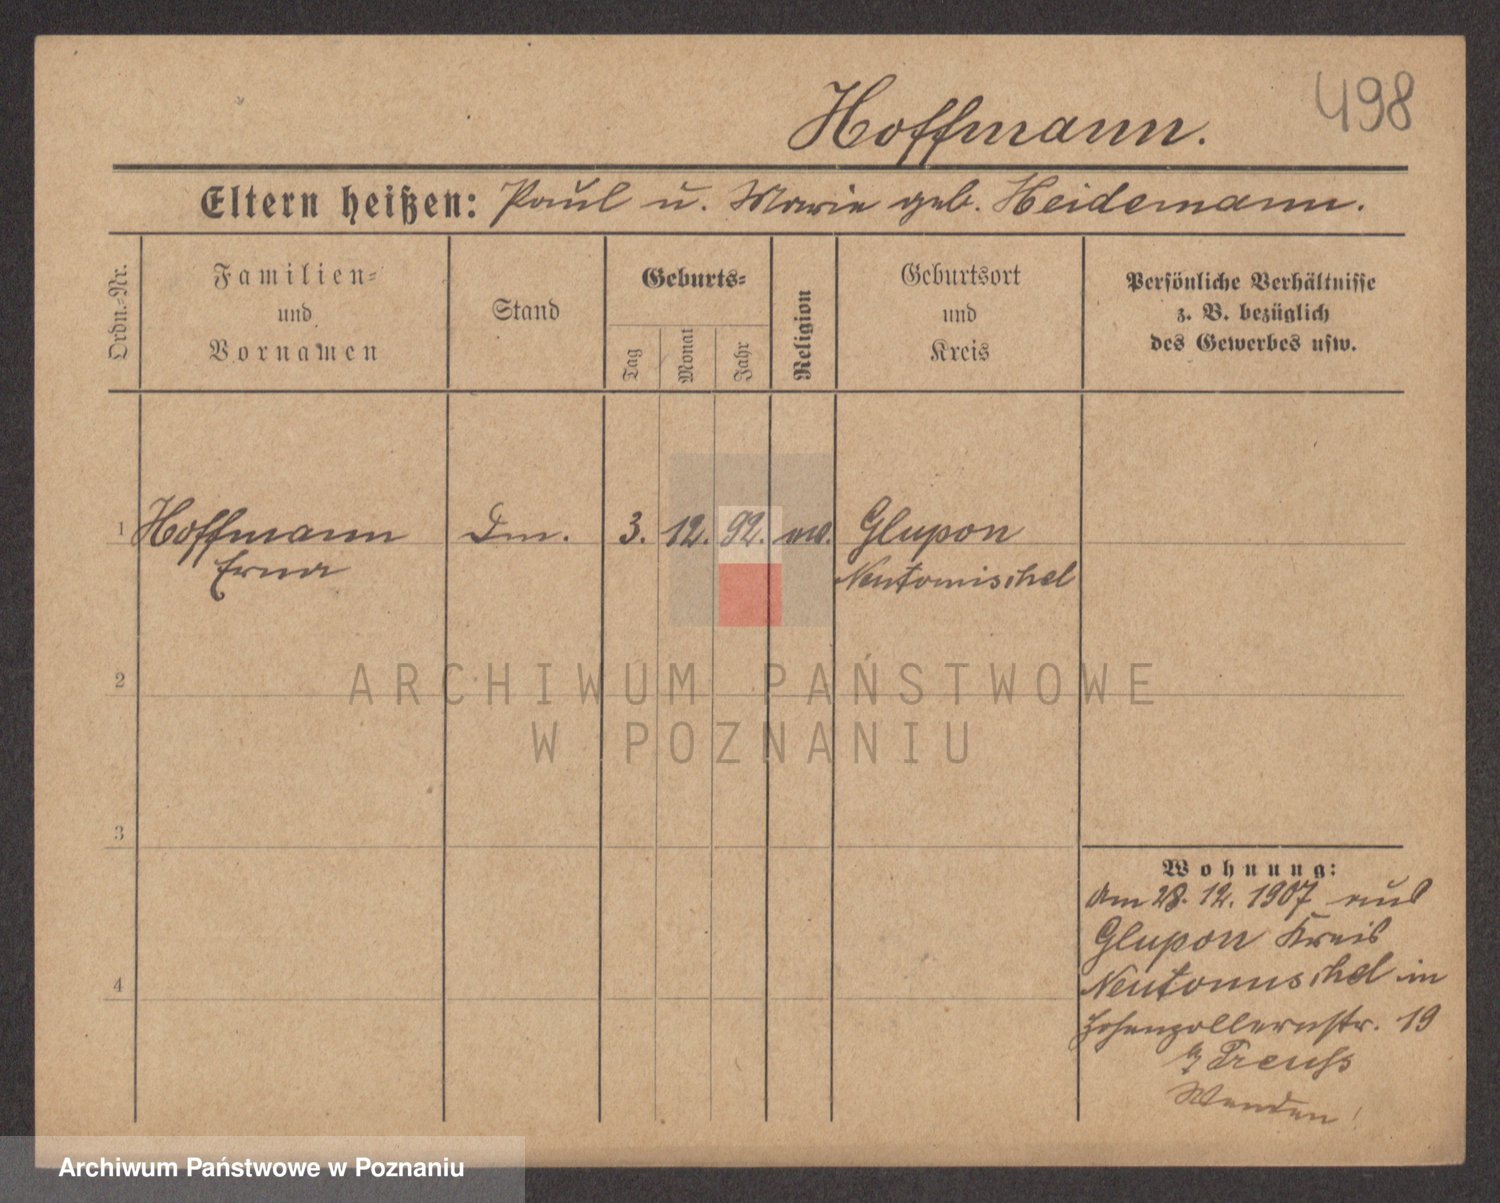 498
Hoffmann.
Eltern heißen: Paul u. Marie geb. Heidemann.
Ordn.-Nr.
Familien-
und
Vornamen
Stand
Geburts-
Tag
Monat
Jahr
Religion
Geburtsort
und
Kreis
Persönliche Verhältnisse
z. B. bezüglich
des Gewerbes usw.
1 Hoffmann 3. 12. 92. Glupon
Erna Neutomischel
2
ARCHIWUM PAŃSTWOWE
W POZNANIU
3
Wohnung:
Am 28. 12. 1907 aus
Glupon Kreis
4
Neutomischel in
Hohenzollernstr. 19
b/ Preuß
Wenden!
Archiwum Państwowe w Poznaniu